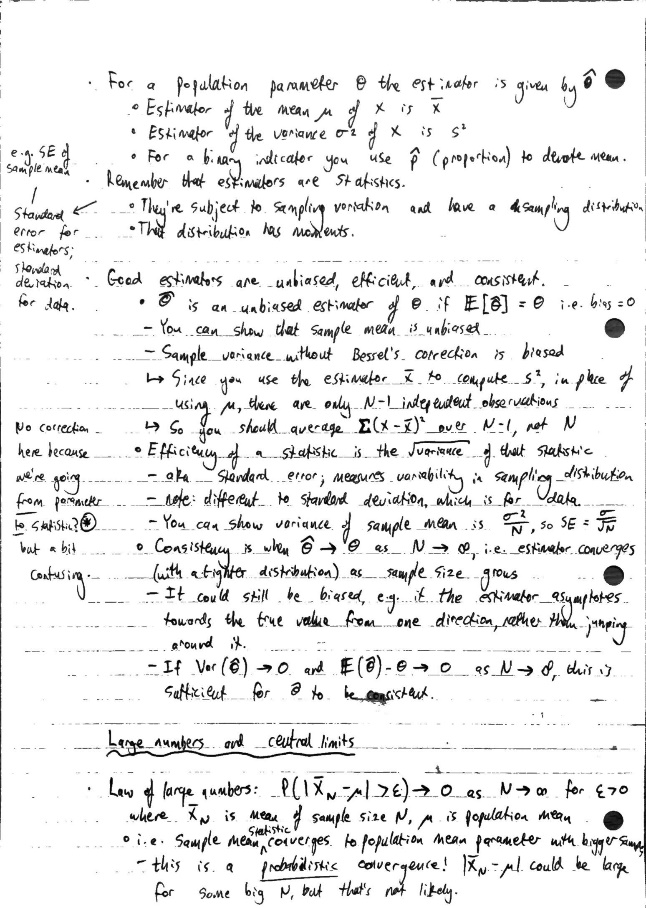 · For a population parameter θ the estimator is given by θ̂
∘ Estimator of the mean μ of X is X̄
∘ Estimator of the variance σ² of X is s²
∘ For a binary indicator you use p̂ (proportion) to denote mean.
e.g. SE of
sample mean
· Remember that estimators are statistics.
∘ They're subject to sampling variation and have a sampling distribution
∘ That distribution has moments.
Standard
error for
estimators;
standard
deviation
for data.
· Good estimators are unbiased, efficient, and consistent.
∘ θ̂ is an unbiased estimator of θ if E[θ̂] = θ i.e. bias = 0
– You can show that sample mean is unbiased
– Sample variance without Bessel's correction is biased
↳ Since you use the estimator x̄ to compute s², in place of
using μ, there are only N-1 independent observations
↳ So you should average Σ(x-x̄)² over N-1, not N
∘ Efficiency of a statistic is the √variance of that statistic
– aka standard error; measures variability in sampling distribution
– note: different to standard deviation, which is for data
– You can show variance of sample mean is σ²/N, so SE = σ/√N
No correction
here because
we're going
from parameter
to statistic? ⊛
but a bit
confusing.
∘ Consistency is when θ̂ → θ as N → ∞, i.e. estimator converges
(with a tighter distribution) as sample size grows
– It could still be biased, e.g. if the estimator asymptotes
towards the true value from one direction, rather than jumping
around it.
– If Var(θ̂) → 0 and E(θ̂) - θ → 0 as N → ∞, this is
sufficient for θ̂ to be consistent.
Large numbers and central limits
· Law of large numbers: P(|X̄_N - μ| > ε) → 0 as N → ∞ for ε > 0
where X̄_N is mean of sample size N, μ is population mean
∘ i.e. sample mean statistic converges to population mean parameter with bigger sample
– this is a probabilistic convergence! |X̄_N - μ| could be large
for some big N, but that's not likely.